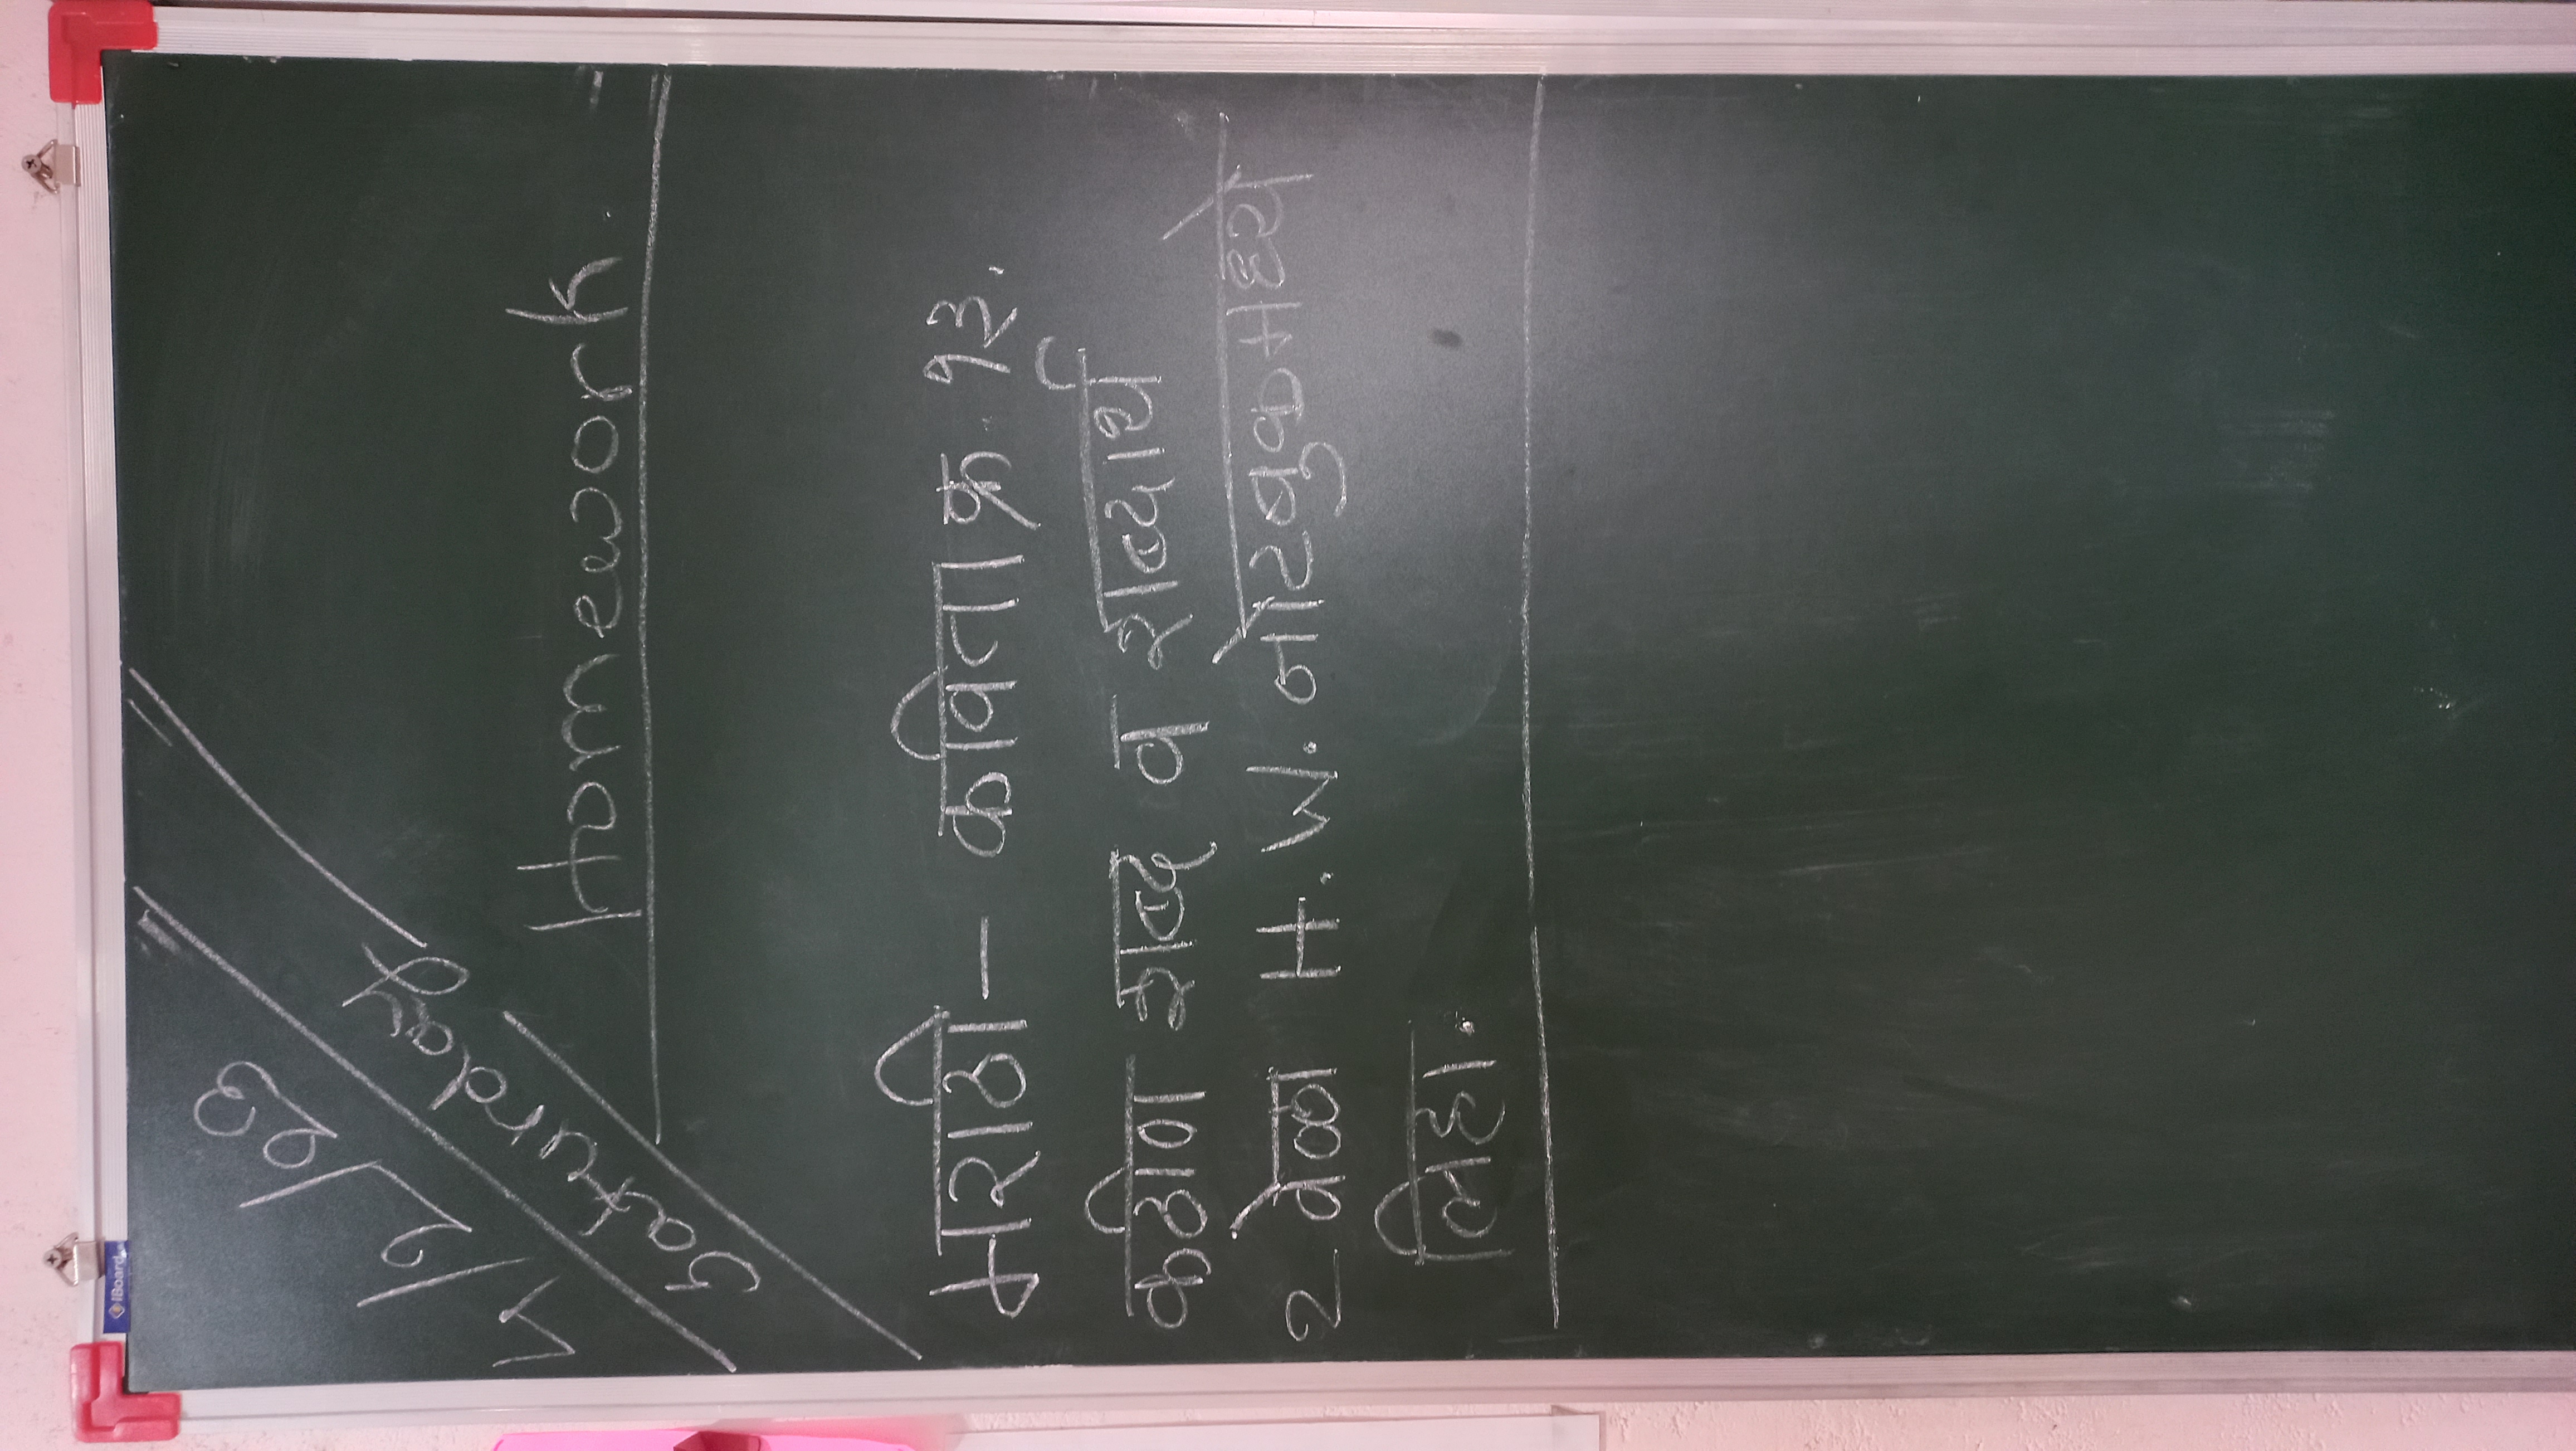 4/2/23
Saturday
Homework.
मराठी - कविता क्र. १३.
कठीण शब्द व शब्दार्थ
२ वेळा H.W. नोटबुकमध्ये
लिहा.
iBoard